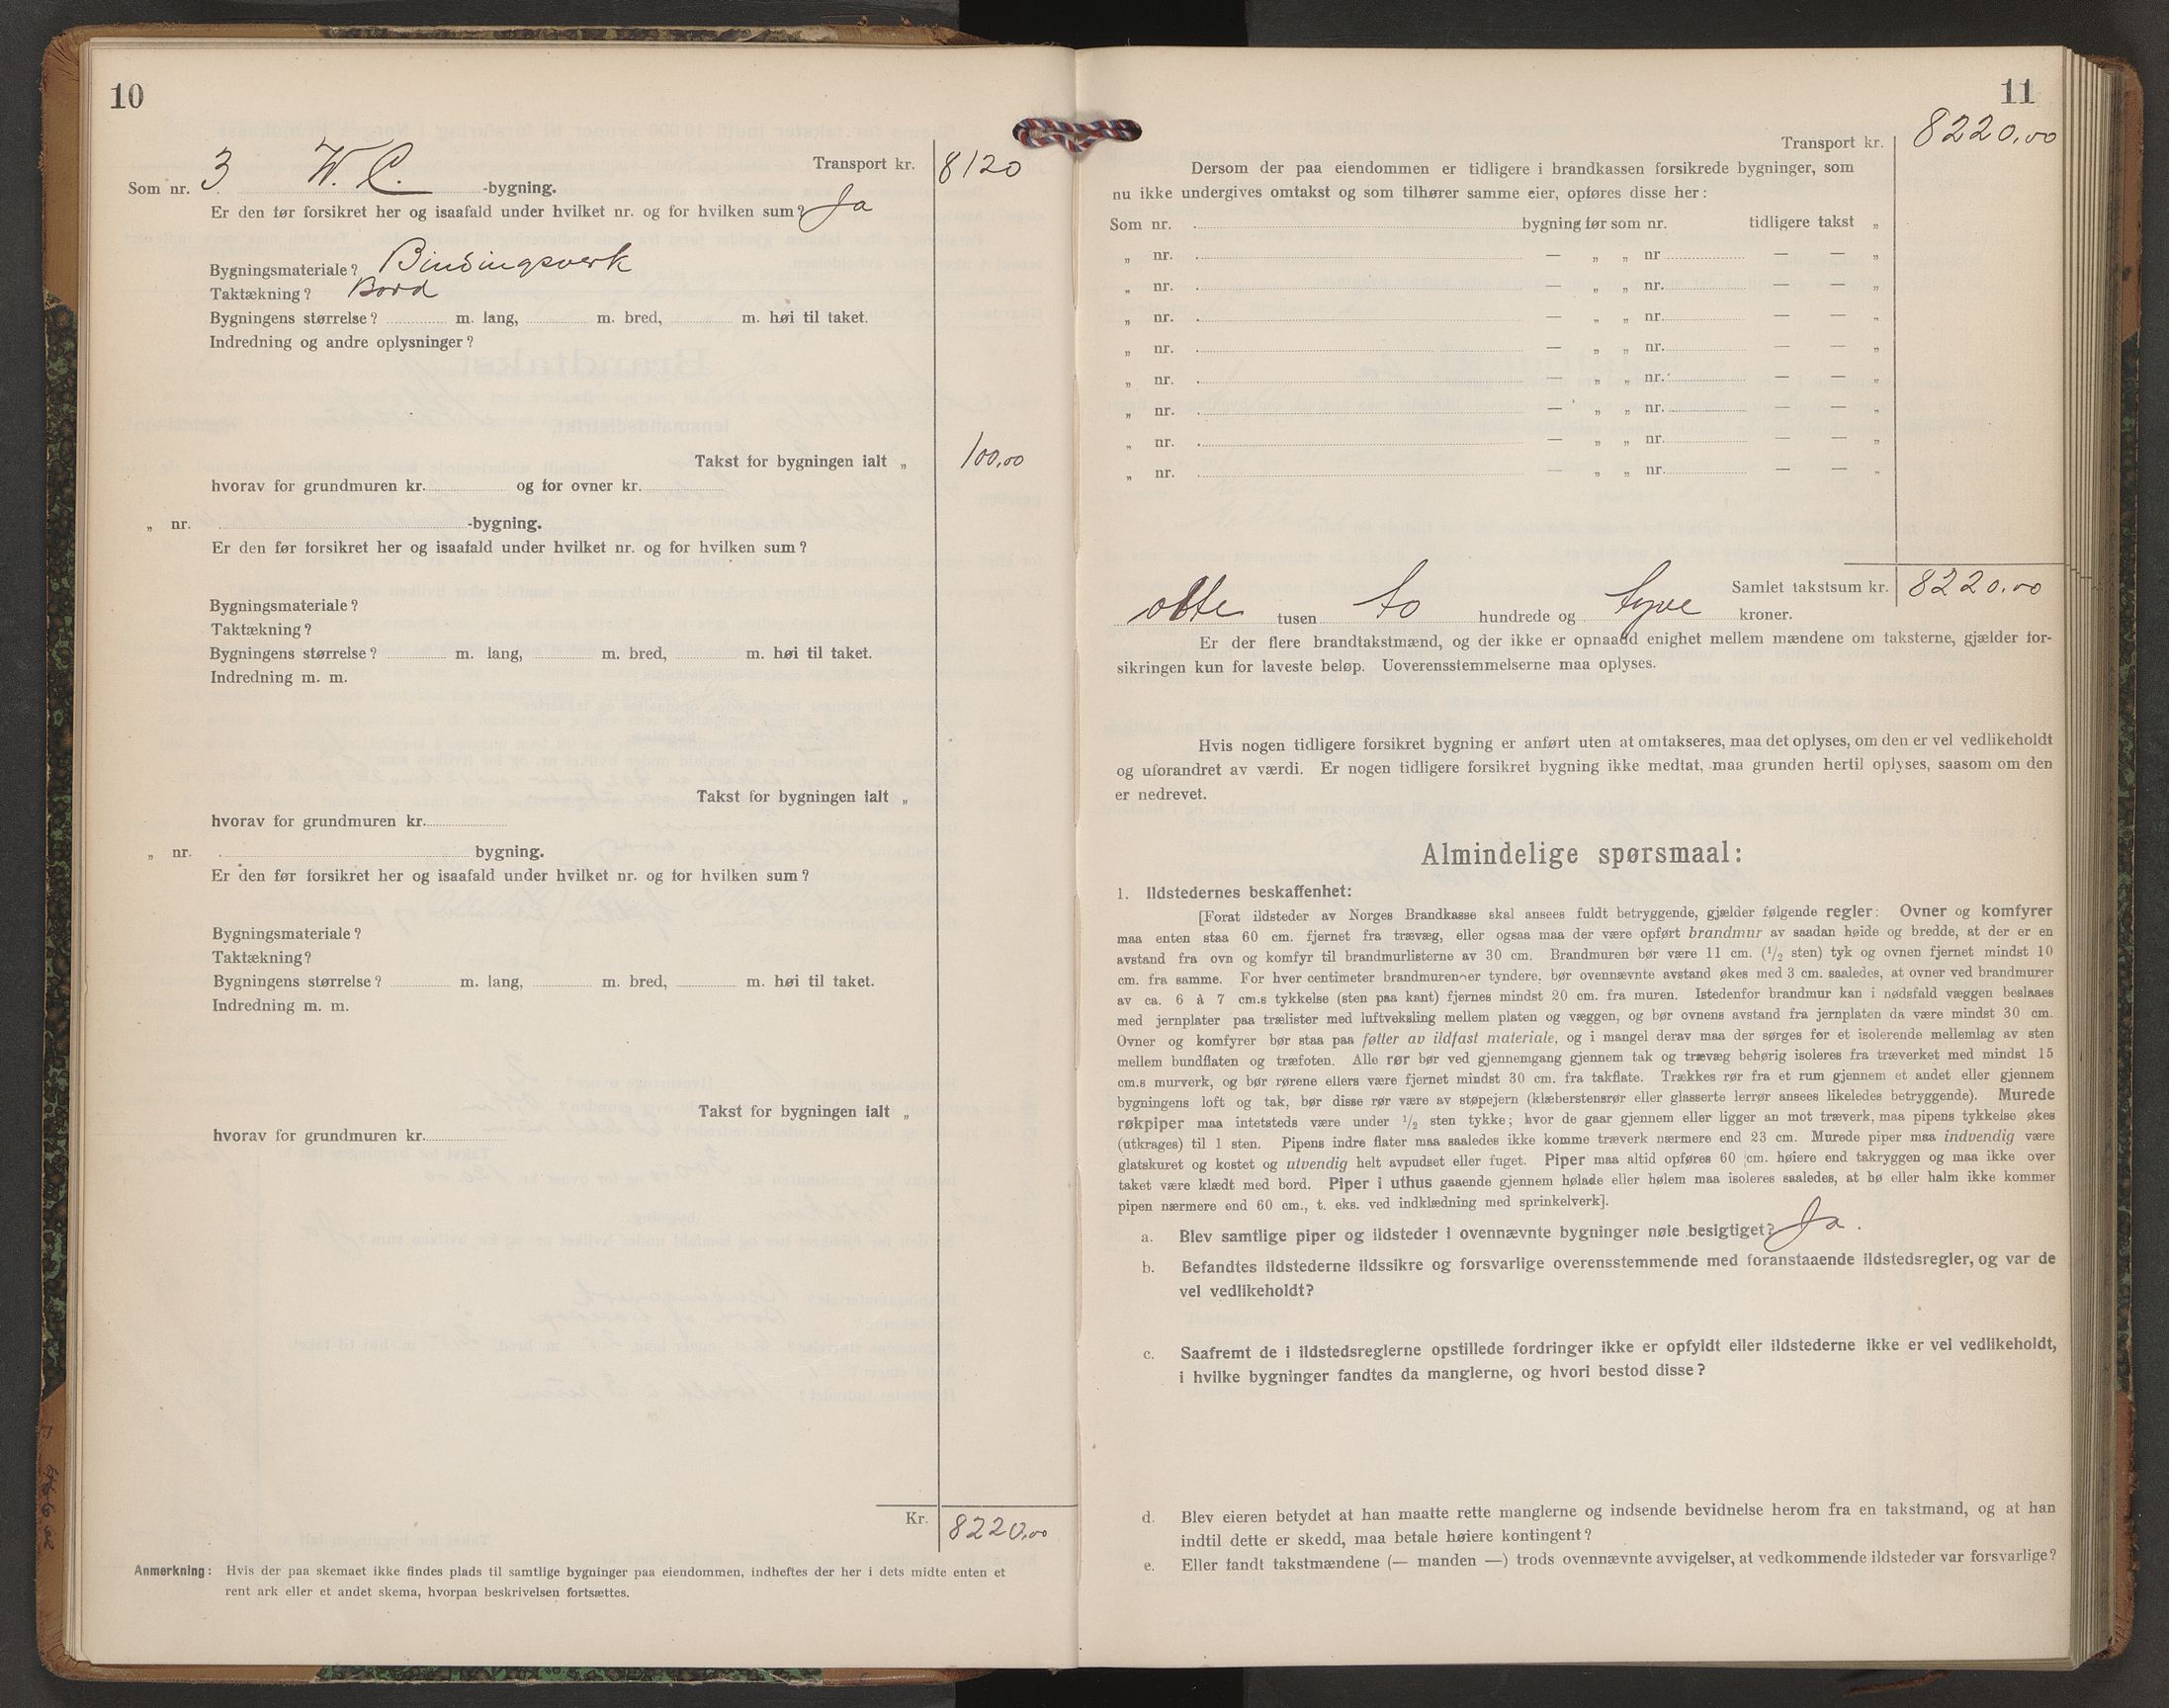 10
Transport kr. 8120
Som nr. 3 W. C. -bygning.
Er den før forsikret her og isaafald under hvilket nr. og for hvilken sum? Ja
Bygningsmateriale? Bindingsverk
Taktækning? Bord
Bygningens størrelse? m. lang, m. bred, m. høi til taket.
Indredning og andre oplysninger?
Takst for bygningen ialt „ 100,00
hvorav for grundmuren kr. og for ovner kr.
„ nr. -bygning.
Er den før forsikret her og isaafald under hvilket nr. og for hvilken sum?
Bygningsmateriale?
Taktækning?
Bygningens størrelse? m. lang, m. bred, m. høi til taket.
Indredning m. m.
Takst for bygningen ialt „
hvorav for grundmuren kr.
„ nr. bygning.
Er den før forsikret her og isaafald under hvilket nr. og for hvilken sum?
Bygningsmateriale?
Taktækning?
Bygningens størrelse? m. lang, m. bred, m. høi til taket.
Indredning m. m.
Takst for bygningen ialt „
hvorav for grundmuren kr.
Kr. 8220,00
Anmerkning: Hvis der paa skemaet ikke findes plads til samtlige bygninger paa eiendommen, indheftes der her i dets midte enten et
rent ark eller et andet skema, hvorpaa beskrivelsen fortsættes.
11
Transport kr. 8220,00
Dersom der paa eiendommen er tidligere i brandkassen forsikrede bygninger, som
nu ikke undergives omtakst og som tilhører samme eier, opføres disse her:
Som nr. bygning før som nr. tidligere takst „
„ nr. — „ „ nr. — — „
„ nr. — „ „ nr. — — „
„ nr. — „ „ nr. — — „
„ nr. — „ „ nr. — — „
„ nr. — „ „ nr. — — „
„ nr. — „ „ nr. — — „
„ nr. — „ „ nr. — — „
„ nr. — „ „ nr. — — „
Samlet takstsum kr. 8220,00
otte tusen to hundrede og tyve kroner.
Er der flere brandtakstmænd, og der ikke er opnaadd enighet mellem mændene om taksterne, gjælder for-
sikringen kun for laveste beløp. Uoverensstemmelserne maa oplyses.
Hvis nogen tidligere forsikret bygning er anført uten at omtakseres, maa det oplyses, om den er vel vedlikeholdt
og uforandret av værdi. Er nogen tidligere forsikret bygning ikke medtat, maa grunden hertil oplyses, saasom om den
er nedrevet.
Almindelige spørsmaal:
1. Ildstedernes beskaffenhet:
[Forat ildsteder av Norges Brandkasse skal ansees fuldt betryggende, gjælder følgende regler: Ovner og komfyrer
maa enten staa 60 cm. fjernet fra trævæg, eller ogsaa maa der være opført brandmur av saadan høide og bredde, at der er en
avstand fra ovn og komfyr til brandmurlisterne av 30 cm. Brandmuren bør være 11 cm. (1/2 sten) tyk og ovnen fjernet mindst 10
cm. fra samme. For hver centimeter brandmuren er tyndere, bør ovennævnte avstand økes med 3 cm. saaledes, at ovner ved brandmurer
av ca. 6 à 7 cm.s tykkelse (sten paa kant) fjernes mindst 20 cm. fra muren. Istedenfor brandmur kan i nødsfald væggen beslaaes
med jernplater paa trælister med luftveksling mellem platen og væggen, og bør ovnens avstand fra jernplaten da være mindst 30 cm.
Ovner og komfyrer bør staa paa føtter av ildfast materiale, og i mangel derav maa der sørges for et isolerende mellemlag av sten
mellem bundflaten og træfoten. Alle rør bør ved gjennemgang gjennem tak og trævæg behørig isoleres fra træverket med mindst 15
cm.s murverk, og bør rørene ellers være fjernet mindst 30 cm. fra takflate. Trækkes rør fra et rum gjennem et andet eller gjennem
bygningens loft og tak, bør disse rør være av støpejern (klæberstensrør eller glasserte lerrør ansees likeledes betryggende). Murede
røkpiper maa intetsteds være under 1/2 sten tykke; hvor de gaar gjennem eller ligger an mot træverk, maa pipens tykkelse økes
(utkrages) til 1 sten. Pipens indre flater maa saaledes ikke komme træverk nærmere end 23 cm. Murede piper maa indvendig være
glatskuret og kostet og utvendig helt avpudset eller fuget. Piper maa altid opføres 60 cm. høiere end takryggen og maa ikke over
taket være klædt med bord. Piper i uthus gaaende gjennem hølade eller hølem maa isoleres saaledes, at hø eller halm ikke kommer
pipen nærmere end 60 cm., t. eks. ved indklædning med sprinkelverk].
a. Blev samtlige piper og ildsteder i ovennævnte bygninger nøie besigtiget? Ja.
b. Befandtes ildstederne ildssikre og forsvarlige overensstemmende med foranstaaende ildstedsregler, og var de
vel vedlikeholdt?
c. Saafremt de i ildstedsreglerne opstillede fordringer ikke er opfyldt eller ildstederne ikke er vel vedlikeholdt,
i hvilke bygninger fandtes da manglerne, og hvori bestod disse?
d. Blev eieren betydet at han maatte rette manglerne og indsende bevidnelse herom fra en takstmand, og at han
indtil dette er skedd, maa betale høiere kontingent?
e. Eller fandt takstmændene (— manden —) trods ovennævnte avvigelser, at vedkommende ildsteder var forsvarlige?